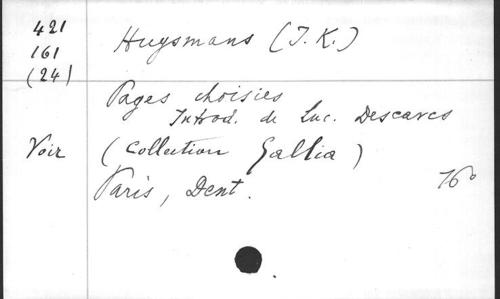 421
161
(24)
Huysmans (J. K.)
Pages choisies
Introd. de Luc. Descaves
Voir (Collection Gallia)
Paris, Dent.
16°